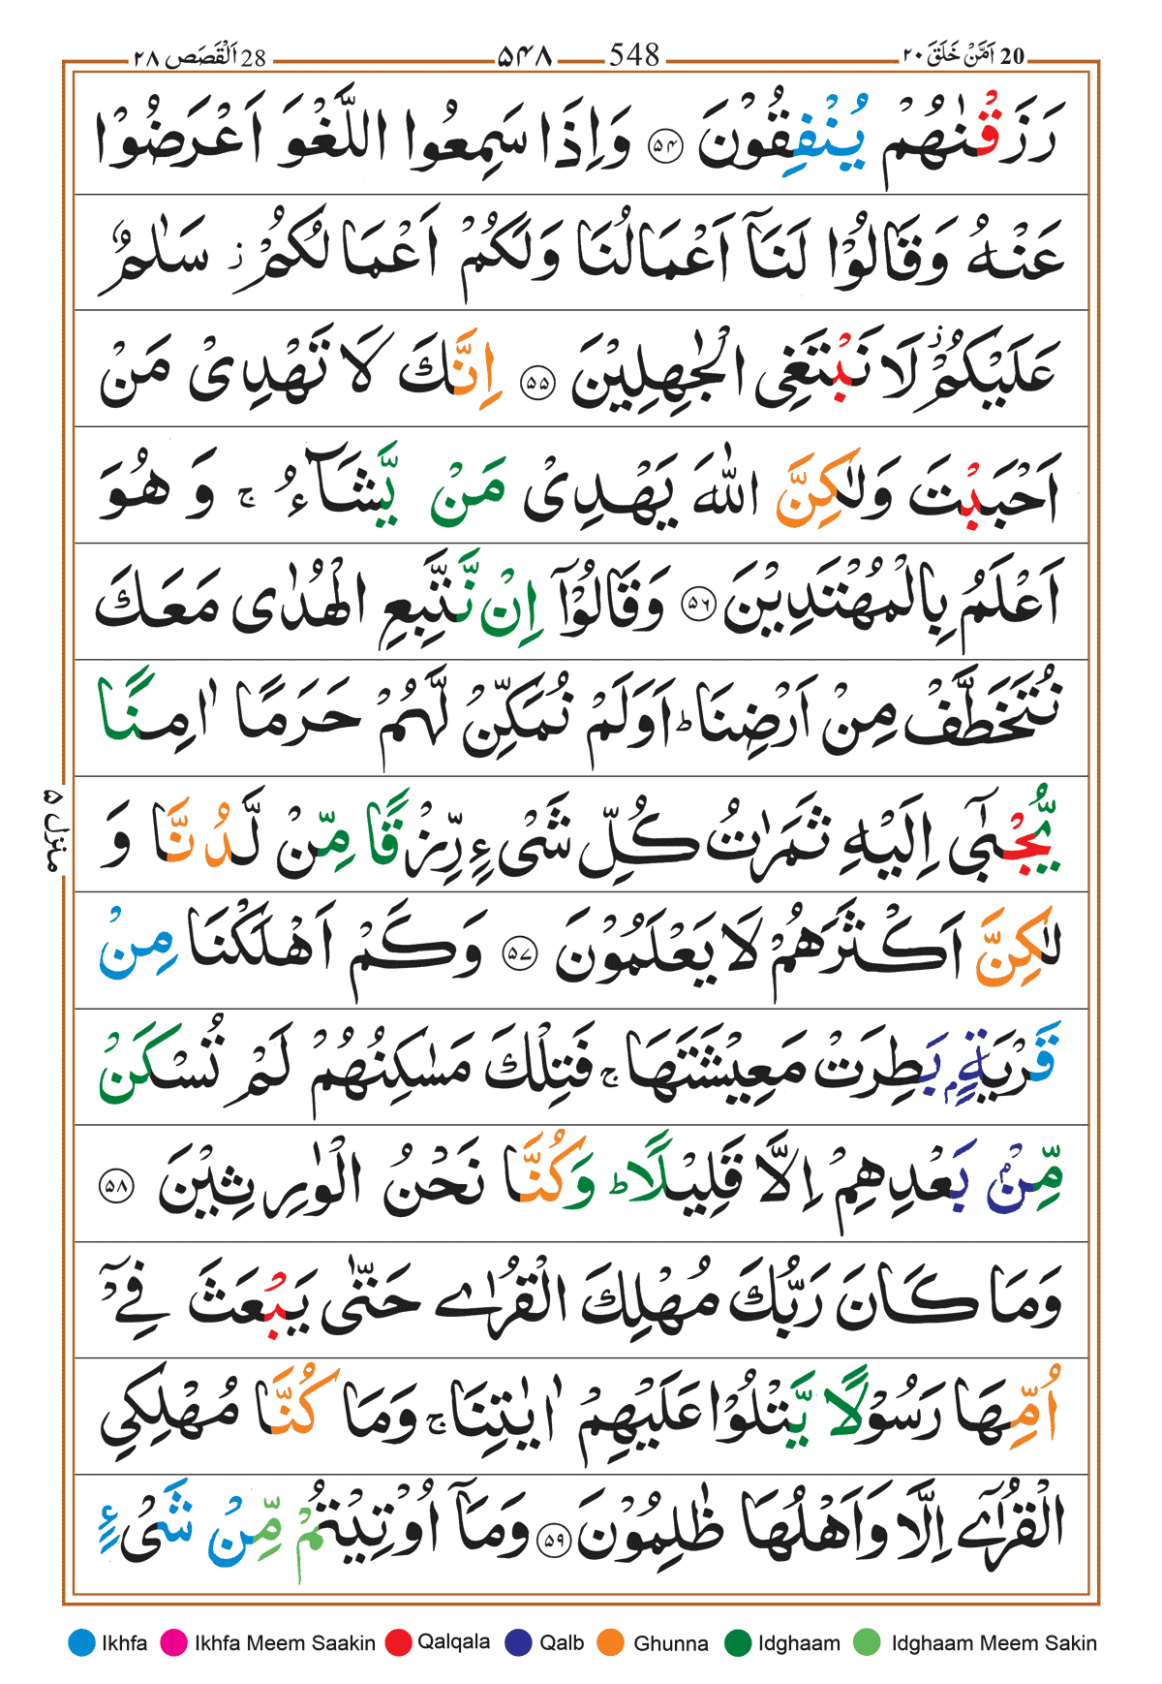 اَمَّنْ خَلَقَ ٢٠ 20 548 ۵۴۸ 28 اَلْقَصَص ٢٨
رَزَقْنٰهُمْ يُنْفِقُوْنَ ﴿۵۴﴾ وَاِذَا سَمِعُوا اللَّغْوَ اَعْرَضُوْا
عَنْهُ وَقَالُوْا لَنَآ اَعْمَالُنَا وَلَكُمْ اَعْمَالُكُمْ ز سَلٰمٌ
عَلَيْكُمْ ز لَا نَبْتَغِى الْجٰهِلِيْنَ ﴿۵۵﴾ اِنَّكَ لَا تَهْدِىْ مَنْ
اَحْبَبْتَ وَلٰكِنَّ اللّٰهَ يَهْدِىْ مَنْ يَّشَآءُ ۚ وَ هُوَ
اَعْلَمُ بِالْمُهْتَدِيْنَ ﴿۵۶﴾ وَقَالُوْٓا اِنْ نَّتَّبِعِ الْهُدٰى مَعَكَ
نُتَخَطَّفْ مِنْ اَرْضِنَا ؕ اَوَلَمْ نُمَكِّنْ لَّهُمْ حَرَمًا اٰمِنًا
يُّجْبٰٓى اِلَيْهِ ثَمَرٰتُ كُلِّ شَىْءٍ رِّزْقًا مِّنْ لَّدُنَّا وَ
لٰكِنَّ اَكْثَرَهُمْ لَا يَعْلَمُوْنَ ﴿۵۷﴾ وَكَمْ اَهْلَكْنَا مِنْ
قَرْيَةٍۭ بَطِرَتْ مَعِيْشَتَهَا ۚ فَتِلْكَ مَسٰكِنُهُمْ لَمْ تُسْكَنْ
مِّنْۢ بَعْدِهِمْ اِلَّا قَلِيْلًا ؕ وَكُنَّا نَحْنُ الْوٰرِثِيْنَ ﴿۵۸﴾
وَمَا كَانَ رَبُّكَ مُهْلِكَ الْقُرٰى حَتّٰى يَبْعَثَ فِىْٓ
اُمِّهَا رَسُوْلًا يَّتْلُوْا عَلَيْهِمْ اٰيٰتِنَا ۚ وَمَا كُنَّا مُهْلِكِى
الْقُرٰٓى اِلَّا وَاَهْلُهَا ظٰلِمُوْنَ ﴿۵۹﴾ وَمَآ اُوْتِيْتُمْ مِّنْ شَىْءٍ
منزل ۵
Ikhfa Ikhfa Meem Saakin Qalqala Qalb Ghunna Idghaam Idghaam Meem Sakin